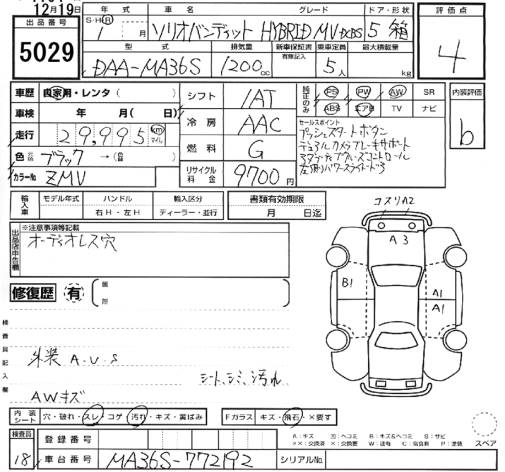 12月19日
出品番号
5029
年式 車名 グレード ドア・形状 評価点
S・H・R 1 月 ソリオバンディット HYBRID MV DCBS 5 箱
4
型式 排気量 新車保証書 乗車定員 最大積載量
有無記入
DAA-MA36S 1200cc 5人 kg
車歴 自家用・レンタ
シフト 1AT
純正のみ PS PW AW SR
ABS エアB TV ナビ
内装評価
b
車検 年 月 日
冷房 AAC
セールスポイント
プッシュスタートボタン
デュアルカメラブレーキサポート
アダプティブクルーズコントロール
左側パワースライドドア
走行 29,995 km マイル
燃料 G
色 ブラック →
カラーNo ZMV
リサイクル料金 9700円
輸入車 モデル年式 ハンドル 輸入区分 書類有効期限
右H・左H ディーラー・並行 月 日迄
※注意事項等記載
出品店申告欄
オーディオレス穴
コスリA2
A3
B1
A1
A1
修復歴 有
箇所
検査員記入欄
外装 A.U.S
シート、シミ、汚れ
AWキズ
内装シート 穴・破れ・スレ・コゲ・汚れ・キズ・黄ばみ Fガラス キズ・飛石・×要す
スペア
検査員 18
登録番号
車台番号 MA36S-772192 シリアルNo.